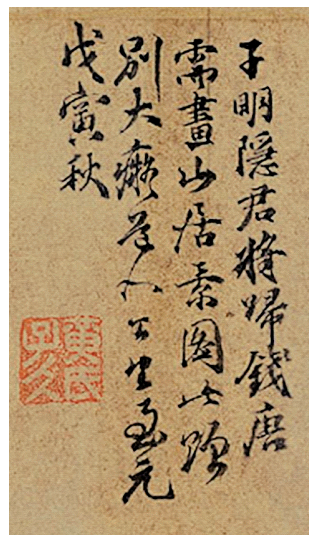 子明隱君將歸錢唐
需畫山居景圖此贈
別大癡道人公望至元
戊寅秋
黃氏子久